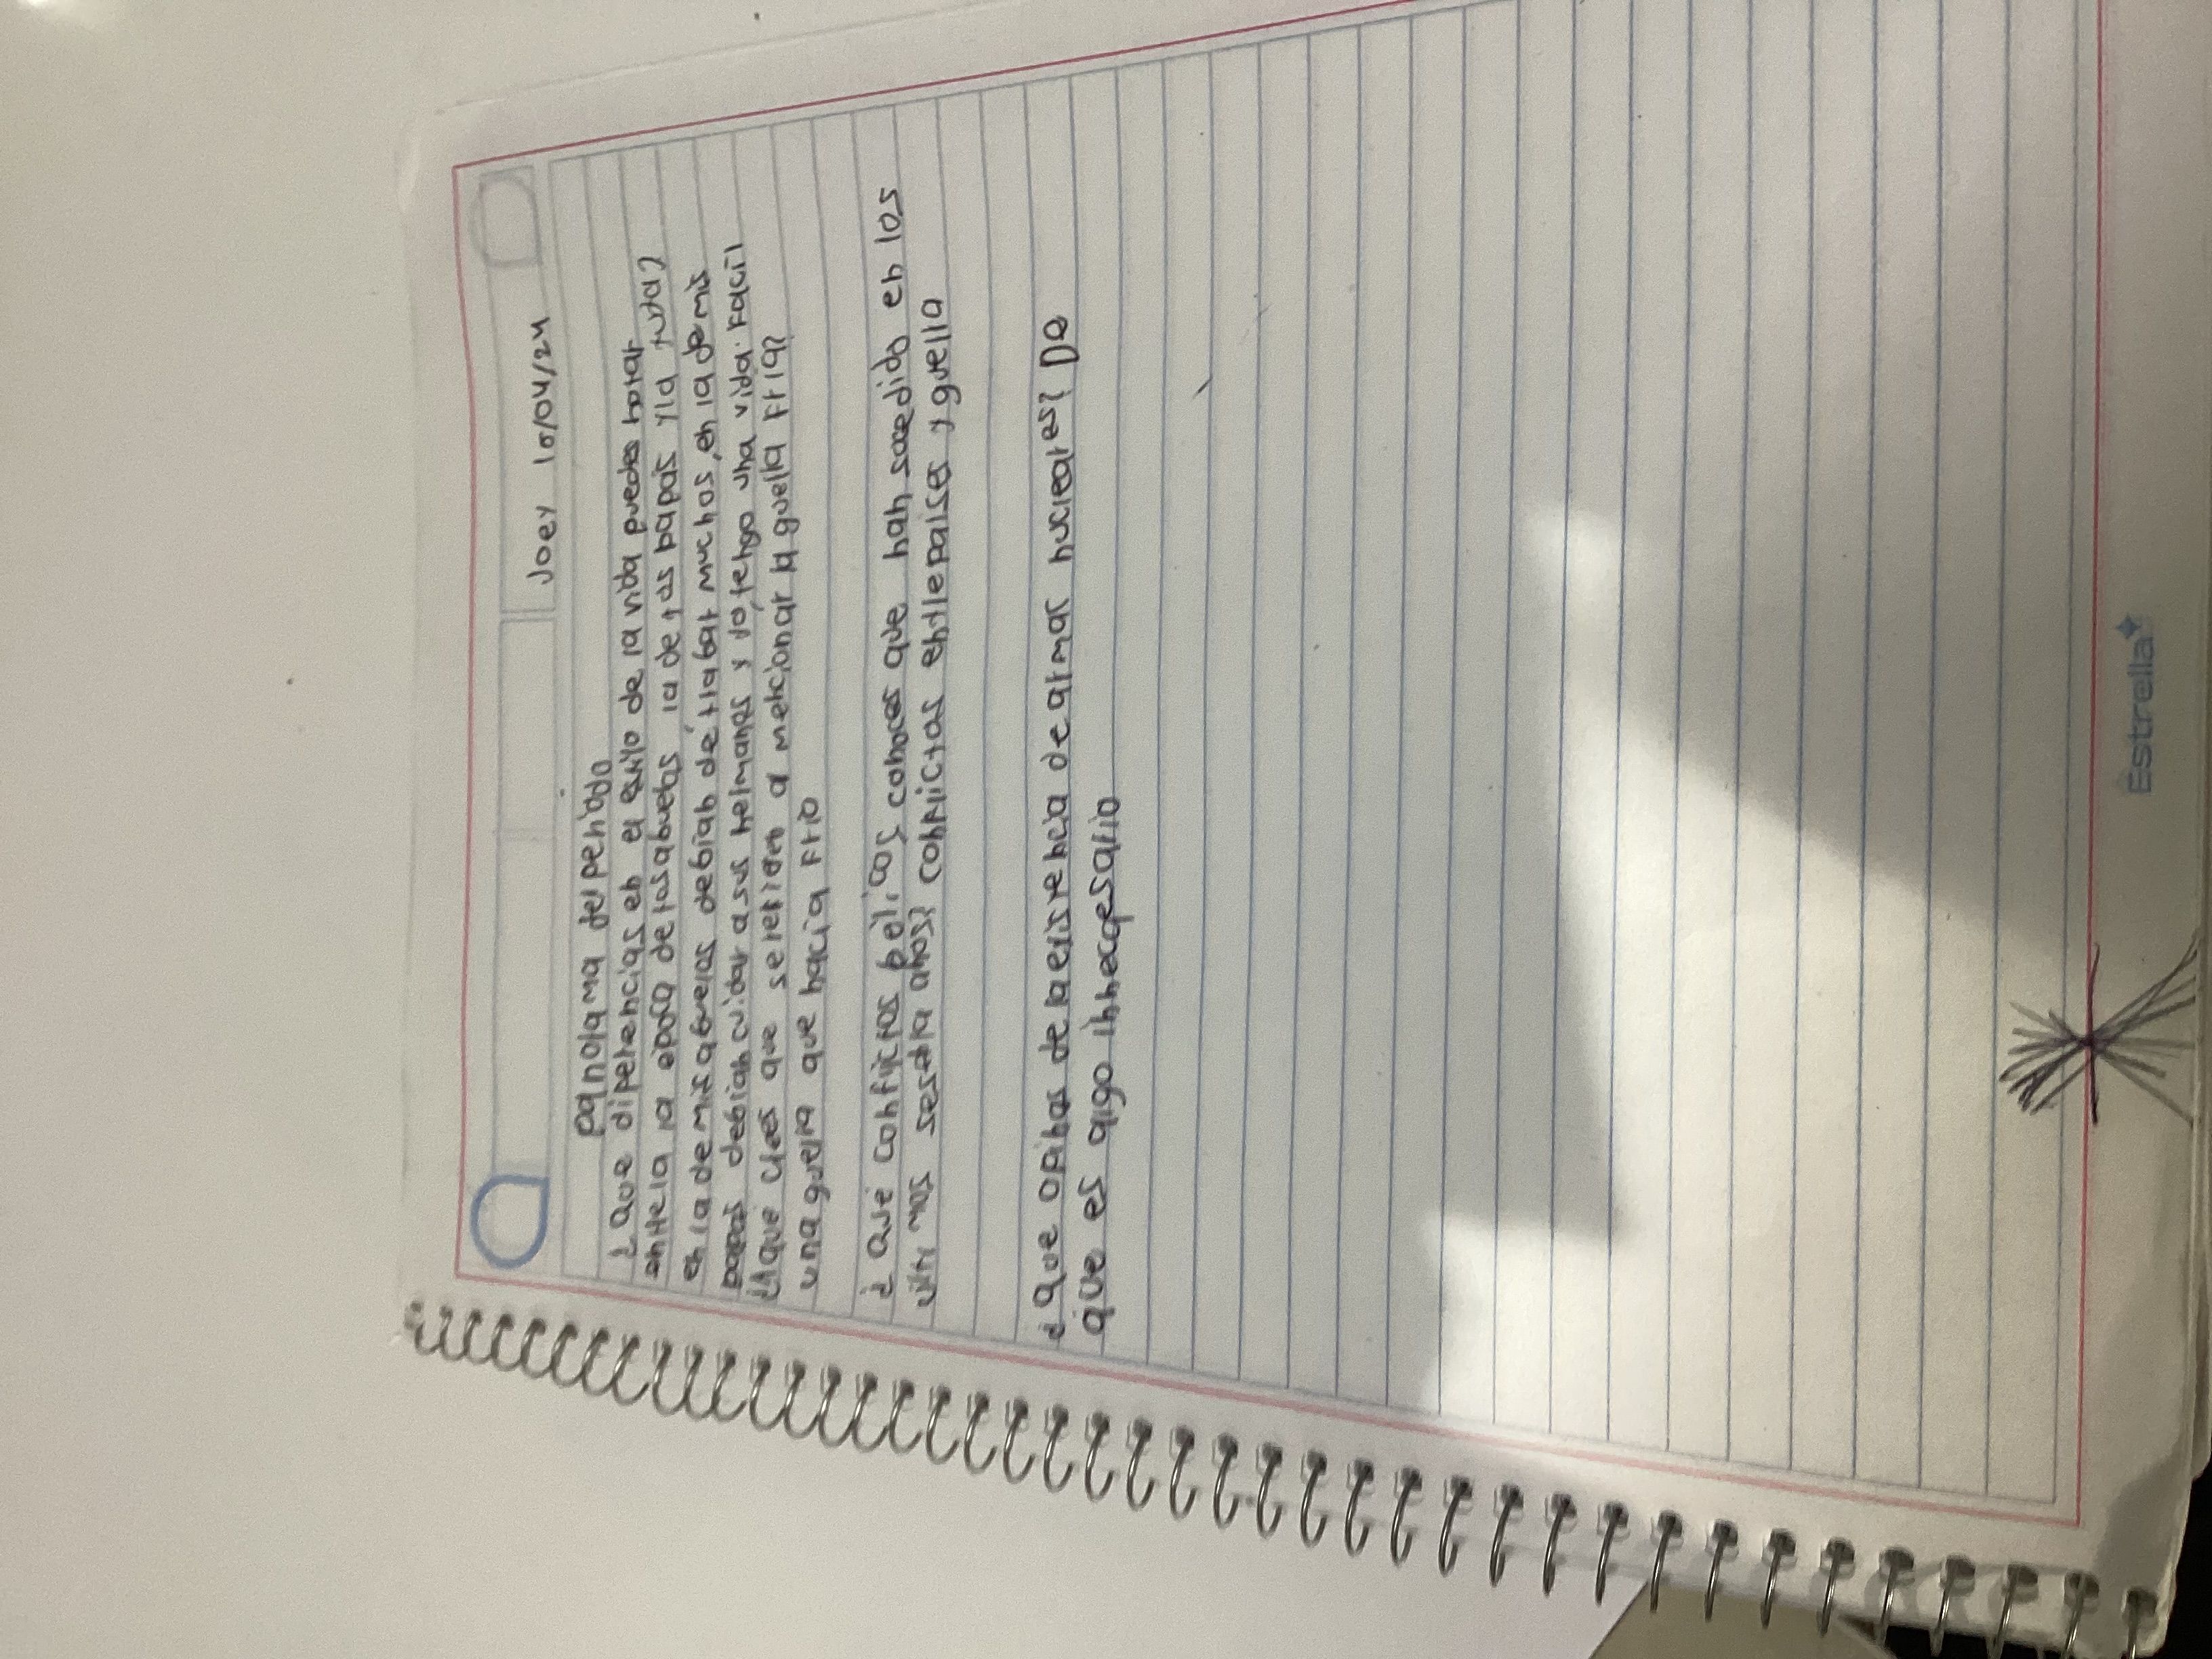 Joey 10/04/24
panolama del periodo
¿Que diferencias en el estilo de la vida puedes notar
entre la época de tus abuelos la de tus papás y la tuya?
en la de mis abuelos debian de trabajar muchos, en la de mis
papas debian cuidar a sus hermanos y yo, tengo una vida facil
¿A que crees que se refiere al mencionar la guerra fria?
una guerra que hacia frio
¿Qué conflictos bélicos conoces que han sucedido en los
últimos sesenta años? conflictos entre paises y guerra
¿que opinas de la existencia de armas nucleares? De
que es algo innecesario
Estrella